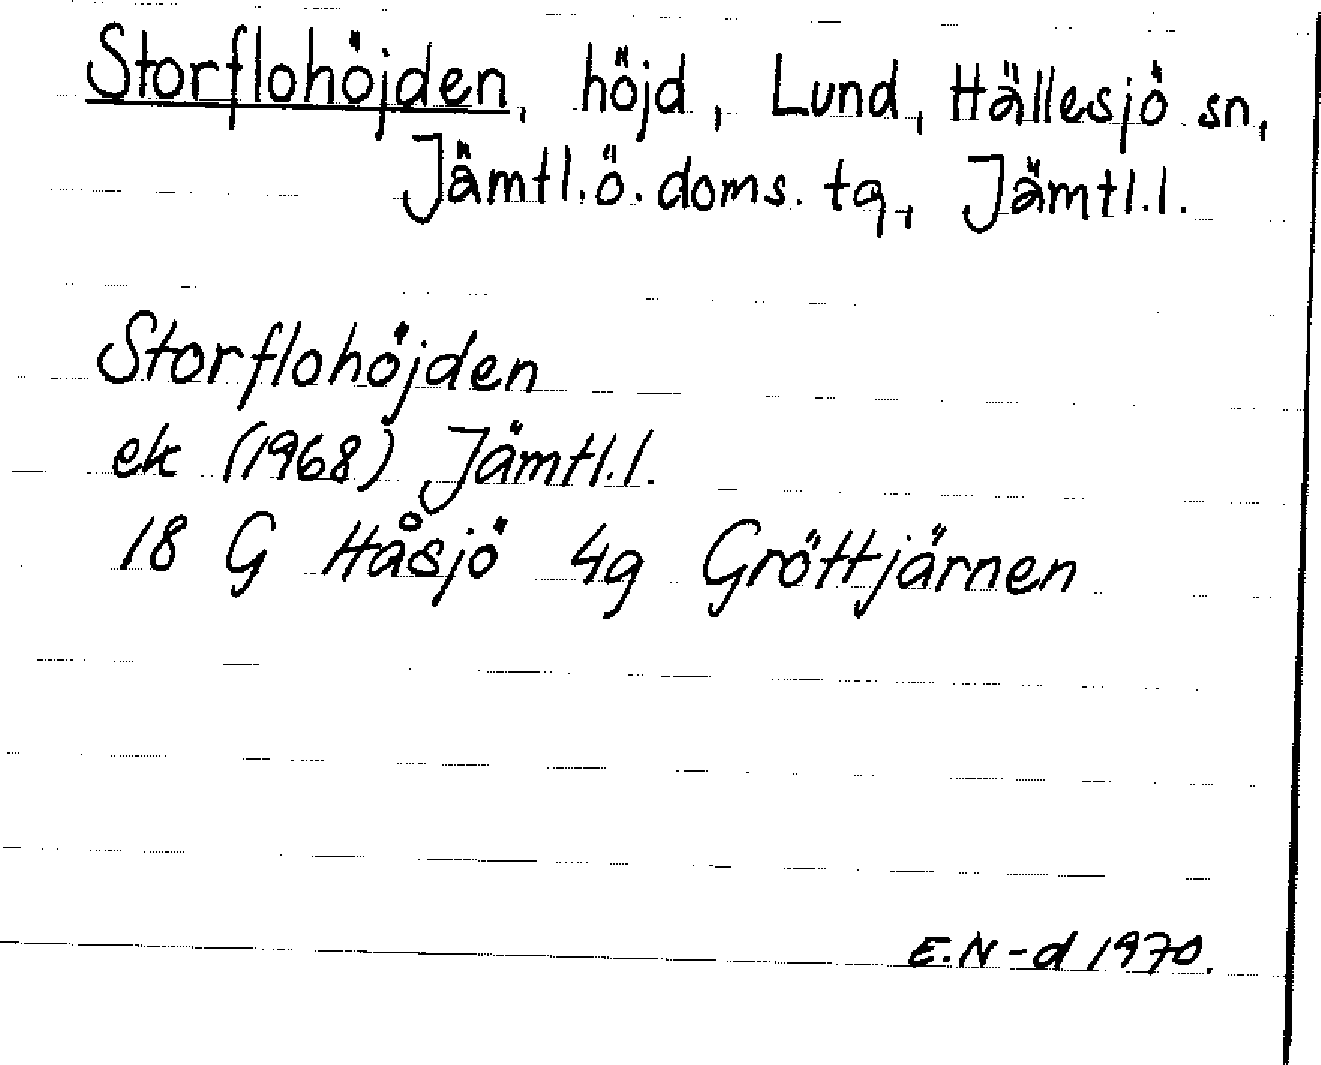 Storflohöjden, höjd, Lund, Hällesjö sn,
Jämtl.ö.doms.tg, Jämtl.l.
Storflohöjden
ek (1968) Jämtl.l.
18 G Håsjö 4g Gröttjärnen
E.N-d 1970.